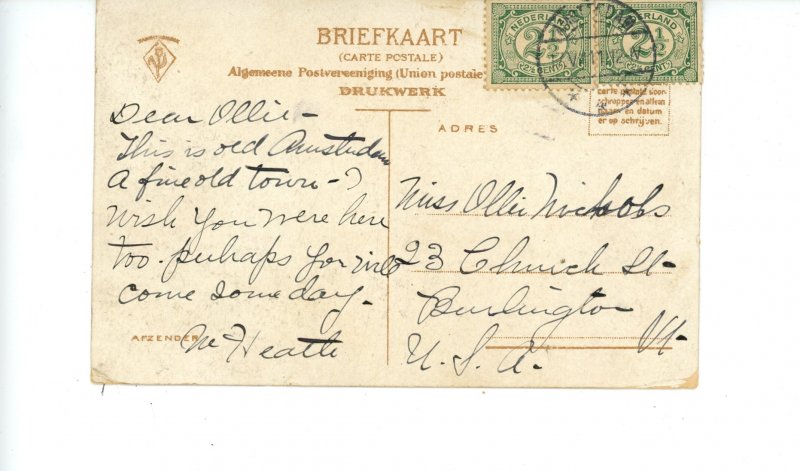 BRIEFKAART
(CARTE POSTALE)
Algemeene Postvereeniging (Union postale
DRUKWERK
NEDERLAND
2½
CENT
NEDERLAND
2½
CENT
ADRES
Dear Ollie -
This is old Amsterdam
a fine old town - I
wish you were here
too. perhaps you will
come some day.
AFZENDER
Mc Heath
Miss Ollie Nichols
23 Church St -
Burlington
Vt.
U. S. A.